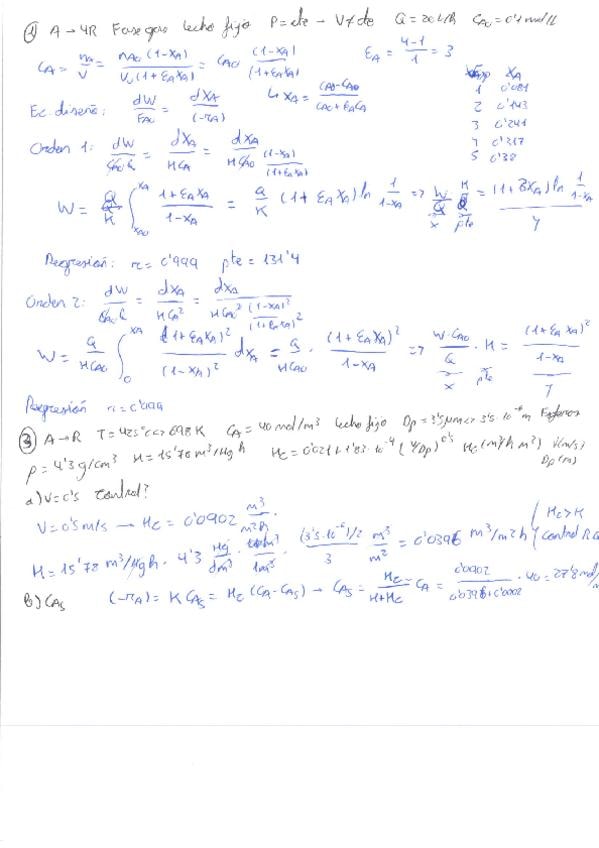 ② A → 4R Fase gas lecho fijo P=cte → V≠cte Q = 20 L/h CA0 = 0'1 mol/L
CA = nA/V = nA0 (1-XA) / V0 (1+εA XA) = CA0 (1-XA)/(1+εA XA) εA = (4-1)/1 = 3
↳ XA = (CA0-CA)/(CA0+εA CA)
XA
1 0'081
2 0'143
3 0'241
4 0'317
5 0'38
Ec. diseño: dW/FA0 = dXA/(-rA)
Orden 1: dW/CA0 Q = dXA/KCA = dXA / KCA0 (1-XA)/(1+εA XA)
W = Q/K ∫ XA0 XA (1+εA XA)/(1-XA) = Q/K (1+εA XA) ln 1/(1-XA) => W/Q K = (1+3XA) ln 1/(1-XA)
x pte y
Regresión: r = 0'999 pte = 131'4
Orden 2: dW/CA0 Q = dXA/KCA² = dXA / KCA0² (1-XA)²/(1+εA XA)²
W = Q/KCA0 ∫ 0 XA (1+εA XA)²/(1-XA)² dXA = Q/KCA0 · (1+εA XA)²/(1-XA) => W·CA0/Q · K = (1+εA XA)²/(1-XA)
x pte y
Regresión r = 0'999
③ A → R T = 425°C <> 698 K CA = 40 mol/m³ lecho fijo Dp = 3'5 μm <> 3'5·10⁻⁶ m Esferas
ρ = 4'3 g/cm³ K = 15'78 m³/kg h Kc = 0'021 + 1'83·10⁻⁴ (V/Dp)^0'5 Kc (m³/h m²) V (m/s) Dp (m)
a) V = 0'5 Control?
V = 0'5 m/s → Kc = 0'0902 m³/m² h
K = 15'78 m³/kg h · 4'3 kg/dm³ · dm³/1m³ · (3'5·10⁻⁶)/2 / 3 m³/m² = 0'0396 m³/m² h { Kc > K
Control RQ
b) CAs (-rA) = K CAs = Kc (CA - CAs) → CAs = Kc/(K+Kc) CA = 0'0902/(0'0396+0'0902) · 40 = 27'8 mol/m